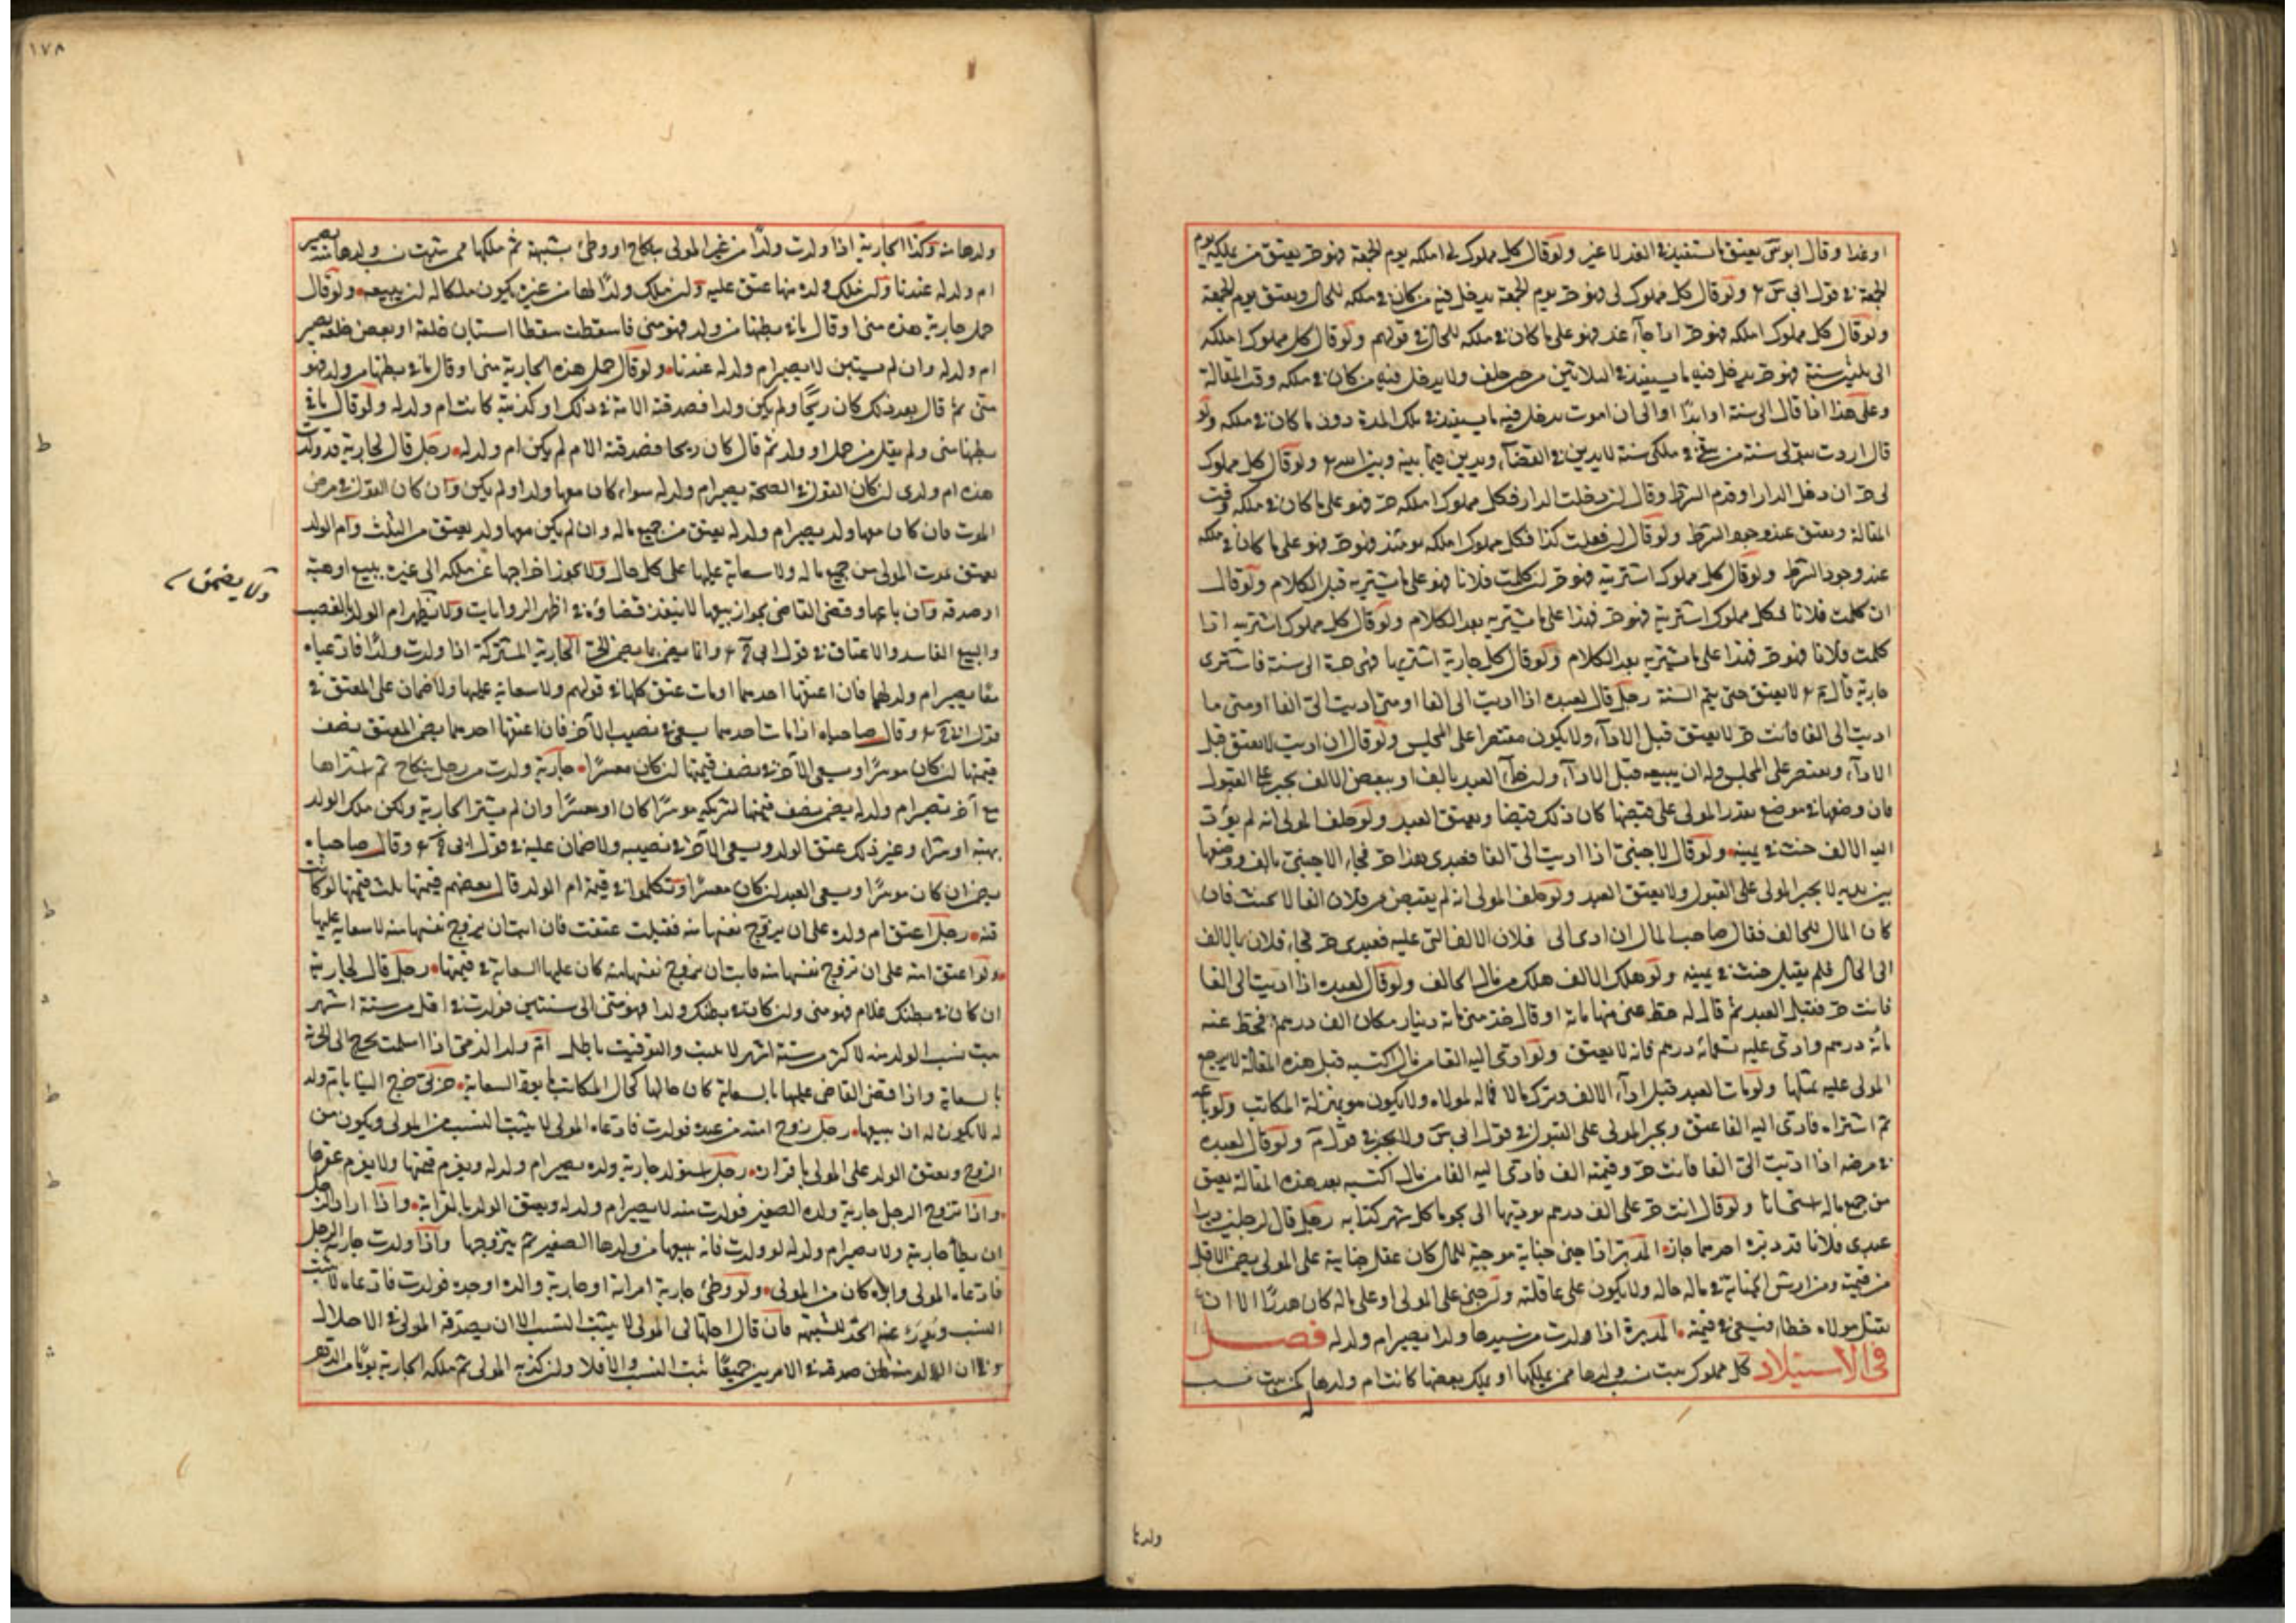 او غدا وقال ابو س يعتق ما استفيد في الغد لا غير ولو قال كل مملوك لي املكه يوم الجمعة فهو حر يعتق من يملكه يوم
الجمعة في قول ابي س ولو قال كل مملوك لي فهو حر يوم الجمعة يدخل فيه من كان في ملكه للحال ويعتق يوم الجمعة
ولو قال كل مملوك املكه فهو حر اذا جاء غد فهو على ما كان في ملكه للحال في قولهم ولو قال كل مملوك املكه
الى ثلثين سنة فهو حر يدخل فيه ما يستفيد في الثلاثين من حين حلف ولا يدخل فيه من كان في ملكه وقت المقالة
وعلى هذا اذا قال الى سنة او ابدا او الى ان اموت يدخل فيه ما يستفيد في تلك المدة دون ما كان في ملكه ولو
قال اردت بقولي سنة من في ملكي سنة لا يدين في القضاء ويدين فيما بينه وبين الله ولو قال كل مملوك
لي حر ان دخل الدار او قدم الشرط وقال ان دخلت الدار فكل مملوك املكه حر فهو على ما كان في ملكه وقت
المقالة ويعتق عند وجود الشرط ولو قال ان فعلت كذا فكل مملوك املكه يومئذ فهو حر فهو على ما كان في ملكه
عند وجود الشرط ولو قال كل مملوك اشتريته فهو حر ان كلمت فلانا فهو على ما يشتريه قبل الكلام ولو قال
ان كلمت فلانا فكل مملوك اشتريه فهو حر فهذا على ما يشتريه بعد الكلام ولو قال كل مملوك اشتريه اذا
كلمت فلانا فهو حر فهذا على ما يشتريه بعد الكلام ولو قال كل جارية اشتريها فهي حرة الى سنة فاشترى
جارية قال م لا يعتق حتى يتم السنة رجل قال لعبده اذا اديت الى الفا او متى اديت الى الفا او متى ما
اديت الى الفا فانت حر لا يعتق قبل الاداء ولا يكون مقتصرا على المجلس ولو قال ان اديت لا يعتق قبل
الاداء ويقتصر على المجلس وله ان يبيعه قبل الاداء وان جاء العبد بالف او ببعض الالف يجبر على القبول
فان وضعها في موضع يقدر المولى على قبضها كان ذلك قبضا ويعتق العبد ولو حلف المولى انه لم يؤد
اليه الالف حنث في يمينه ولو قال لاجنبي اذا اديت الى الفا فعبدي هذا حر فجاء الاجنبي بالف ووضعها
بين يديه لا يجبر المولى على القبول ولا يعتق العبد ولو حلف المولى انه لم يقبض من فلان الفا لا يحنث فان
كان المال للحالف فقال صاحب المال ان ادى الى فلان الالف التي عليه فعبدي حر فجاء فلان بالالف
الى الحال فلم يقبل حنث في يمينه ولو هلك الالف هلك من مال الحالف ولو قال لعبده اذا اديت الى الفا
فانت حر فقبل العبد ثم قال له حط عني منها مائة او قال خذ مني مائة دينار مكان الف درهم فحط عنه
مائة درهم وادى عليه تسعمائة درهم فانه لا يعتق ولو ادى اليه الفا من مال اكتسبه قبل هذه المقالة لا يرجع
المولى عليه بمثلها ولو مات العبد قبل اداء الالف وترك مالا فماله لمولاه ولا يكون هو بمنزلة المكاتب ولو باعه
ثم اشتراه فادى اليه الفا عتق ويجبر المولى على القبول في قول ابي س ولا يجبر في قول م ولو قال لعبده
في مرضه اذا اديت الى الفا فانت حر وقيمته الف فادى اليه الفا من مال اكتسبه بعد هذه المقالة يعتق
من جميع ماله استحسانا ولو قال انت حر على الف درهم يوديها الى نجوما كل شهر كذا رجل قال لرجلين دبرا
عبدي فلانا فدبره احدهما جاز المدبر اذا جنى جناية موجبة للمال كان عقل جنايته على المولى يضمن الاقل
من قيمته ومن ارش الجناية في ماله حاله ولا يكون على عاقلته وان جنى على المولى او على ماله كان هدرا الا ان
يقتل مولاه خطا فيسعى في قيمته المدبرة اذا ولدت من سيدها ولدا يصير ام ولد له فصل
في الاستيلاد كل مملوك يثبت نسب ولدها ممن يملكها او يملك بعضها كانت ام ولد له لمن يثبت نسب
ولدها
١٧٨
ولدها منه وكذا الجارية اذا ولدت ولدا من غير المولى بنكاح او وطئ بشبهة ثم ملكها من يثبت نسب ولدها منه يصير
ام ولد له عندنا وان ملك ولده منها عتق عليه وان ملك ولدا لها من غيره يكون ملكا له ان يبيعه ولو قال
حمل جارية هذه مني او قال ما في بطنها من ولد فهو مني فاسقطت سقطا استبان خلقه او بعض خلقه يصير
ام ولد له وان لم يستبن لا يصير ام ولد له عندنا ولو قال حمل هذه الجارية مني او قال ما في بطنها من ولد فهو
مني ثم قال بعد ذلك كان ريحا ولم يكن ولدا فصدقته الامة في ذلك او كذبته كانت ام ولد له ولو قال ما في
بطنها مني ولم يقل من حمل او ولد ثم قال كان ريحا فصدقته الام لم يكن ام ولد له رجل قال لجارية قد ولدت
هذه ام ولدي ان كان القول في الصحة يصير ام ولد له سواء كان معها ولد او لم يكن وان كان القول في مرض
الموت فان كان معها ولد يصير ام ولد له يعتق من جميع ماله وان لم يكن معها ولد يعتق من الثلث وام الولد
يعتق بموت المولى من جميع ماله ولا سعاية عليها على كل حال ولا يجوز اخراجها عن ملكه الى غيره ببيع او هبة
او صدقة وان باعها وقضى القاضي بجواز بيعها لا ينفذ قضاؤه في اظهر الروايات ولا يظهر ام الولد بالغصب
ولا يضمن
والبيع الفاسد والاعتاق في قول ابي ح وانما يضمن بما يضمن الحرة الجارية المشتركة اذا ولدت ولدا فادعياه
معا يصير ام ولد لهما فان اعتقها احدهما او مات عتق كلها في قولهم ولا سعاية عليها ولا ضمان على المعتق في
قول ابي ح وقال صاحباه اذا مات احدهما يسعى في نصيب الآخر فان اعتقها احدهما يضمن المعتق نصف
قيمتها ان كان موسرا ويسعى الآخر في نصف قيمتها ان كان معسرا جارية ولدت من رجل بنكاح ثم اشتراها
مع آخر تصير ام ولد له يضمن نصف قيمتها لشريكه موسرا كان او معسرا وان لم يشتر الجارية ولكن ملك الولد
بهبة او شراء وغير ذلك عتق الولد ويسعى للآخر في نصيبه ولا ضمان عليه في قول ابي ح وقال صاحباه
يضمن ان كان موسرا ويسعى العبد ان كان معسرا وتكلموا في قيمة ام الولد قال بعضهم قيمتها ثلث قيمتها لو كانت
قنه رجل اعتق ام ولده على ان يزوج نفسها منه فقبلت عتقت فان ابت ان يزوج نفسها منه لا سعاية عليها
ولو اعتق امته على ان تزوج نفسها منه فابت ان تزوج نفسها منه كان عليها السعاية في قيمتها رجل قال لجاريته
ان كان في بطنك غلام فهو مني وان كان في بطنك ولدا فهو مني الى سنتين فولدت في اقل من ستة اشهر
يثبت نسب الولد منه لاكثر من ستة اشهر لا يثبت والتوقيت باطل ام ولد الذمي اذا اسلمت تخرج الى الحرية
بالسعاية واذا قضى القاضي عليها بالسعاية كان حالها كحال المكاتب ما بقى السعاية حربي خرج الينا بام ولد
له لا يكون له ان يبيعها رجل زوج امته من عبده فولدت فادعاه المولى لا يثبت النسب من المولى ويكون من
الزوج ويعتق الولد على المولى باقراره رجل استولد جارية ولده يصير ام ولد له ويغرم قيمتها ولا يغرم عقرها
واذا تزوج الرجل جارية ولده الصغير فولدت منه لا يصير ام ولد له ويعتق الولد بالقرابة واذا اراد الرجل
ان يطأ جارية ولا يصير ام ولد له لو ولدت فانه يبيعها من ولدها الصغير ثم يتزوجها واذا ولدت جارية الرجل
فادعاه المولى وابوه كان من المولى ولو وطئ جارية امراته او جارية والده او جده فولدت فادعاه لا يثبت
النسب ويدرء عنه الحد للشبهة فان قال احلها لي المولى لا يثبت النسب الا ان يصدقه المولى في الاحلال
وفي ان الولد منه فان صدقه في الامرين جميعا ثبت النسب والا فلا وان كذبه المولى ثم ملك الجارية يوما من الدهر